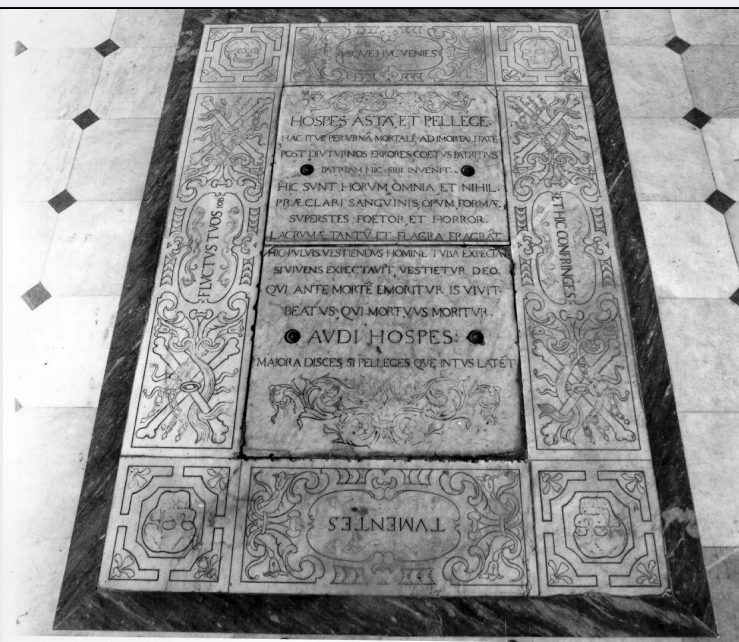 VSQVE HVC VENIES
HOSPES ASTA ET PELLEGE
HAC ITVR PER VRNĀ MORTALĒ AD IMORTALITATĒ
POST DIVTVRNOS ERRORES COETVS PATRITIVS
PATRIAM HIC SIBI INVENIT
HIC SVNT HORVM OMNIA ET NIHIL
PRÆCLARI SANGVINIS OPVM FORMÆ
SVPERSTES FOETOR ET HORROR
LACRVMÆ TANTV̄ ET FLAGRA FRAGRĀT
HIC PVLVIS VESTIENDVS HOMINE TVBA EXPECTAT
SI VIVENS EXPECTAVIT VESTIETVR DEO
QVI ANTE MORTĒ EMORITVR IS VIVIT
BEATVS QVI MORTVVS MORITVR
AVDI HOSPES:
MAIORA DISCES SI PELLEGES QVÆ INTVS LATĒT
ET HIC CONFRINGES
TVMENTES
FLVCTVS TVOS